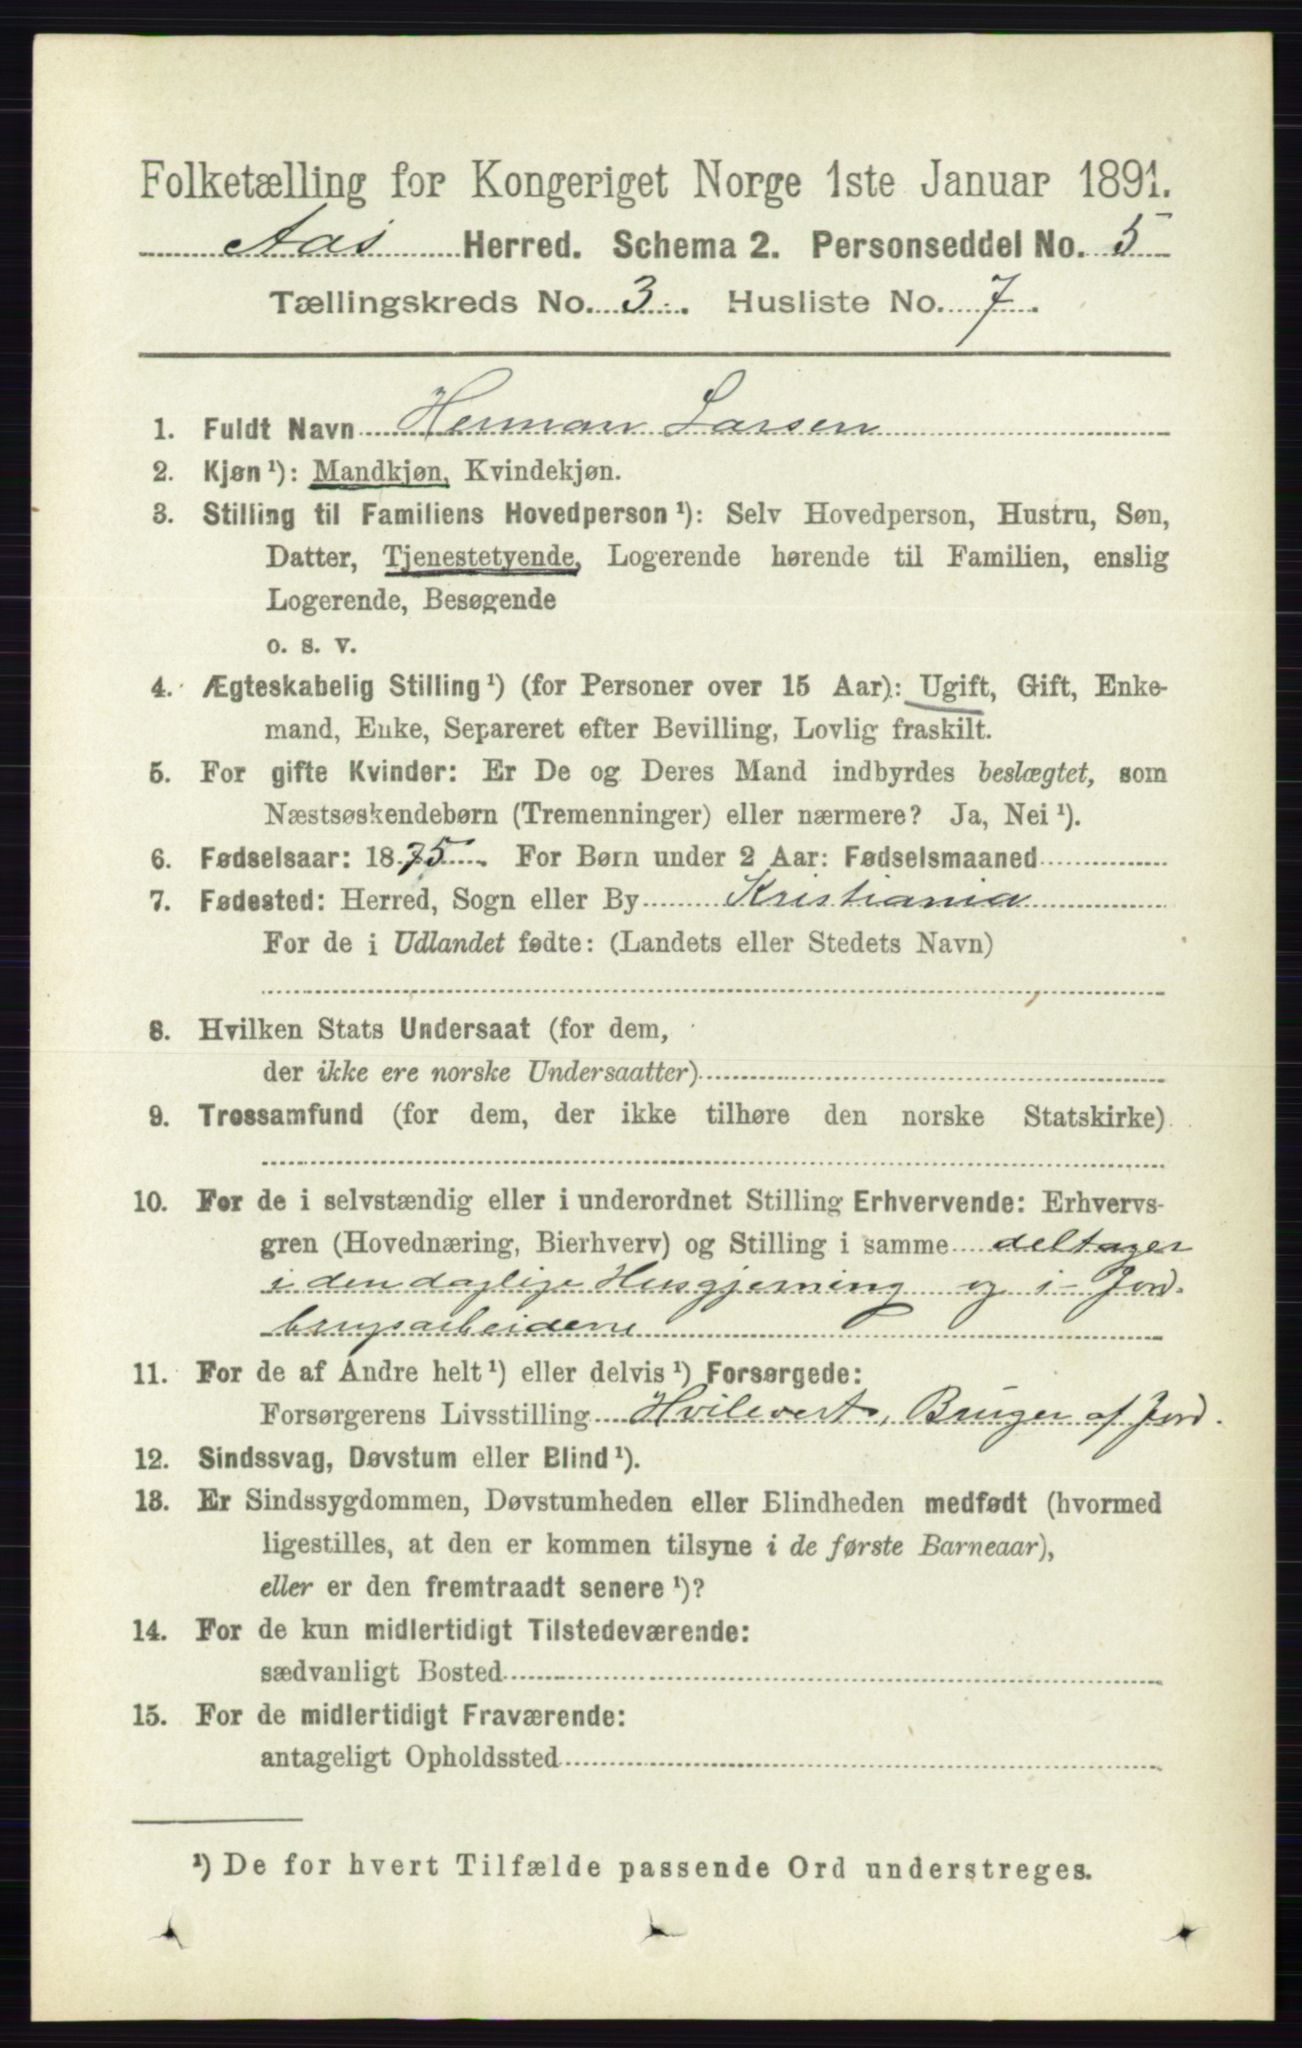 Folketælling for Kongeriget Norge 1ste Januar 1891.
Aas Herred. Schema 2. Personseddel No. 5
Tællingskreds No. 3. Husliste No. 7.
1. Fuldt Navn Herman Larsen
2. Kjøn ¹): Mandkjøn, Kvindekjøn.
3. Stilling til Familiens Hovedperson ¹): Selv Hovedperson, Hustru, Søn,
Datter, Tjenestetyende, Logerende hørende til Familien, enslig
Logerende, Besøgende
o. s. v.
4. Ægteskabelig Stilling ¹) (for Personer over 15 Aar): Ugift, Gift, Enke-
mand, Enke, Separeret efter Bevilling, Lovlig fraskilt.
5. For gifte Kvinder: Er De og Deres Mand indbyrdes beslægtet, som
Næstsøskendebørn (Tremenninger) eller nærmere? Ja, Nei ¹).
6. Fødselsaar: 1875. For Børn under 2 Aar: Fødselsmaaned
7. Fødested: Herred, Sogn eller By Kristiania
For de i Udlandet fødte: (Landets eller Stedets Navn)
8. Hvilken Stats Undersaat (for dem,
der ikke ere norske Undersaatter)
9. Trossamfund (for dem, der ikke tilhøre den norske Statskirke)
10. For de i selvstændig eller i underordnet Stilling Erhvervende: Erhvervs-
gren (Hovednæring, Bierhverv) og Stilling i samme deltager
i den daglige Husgjerning og i Jord.
brugsarbeiderne
11. For de af Andre helt ¹) eller delvis ¹) Forsørgede:
Forsørgerens Livsstilling Hvilevert, Bruger af Jord.
12. Sindssvag, Døvstum eller Blind ¹).
13. Er Sindssygdommen, Døvstumheden eller Blindheden medfødt (hvormed
ligestilles, at den er kommen tilsyne i de første Barneaar),
eller er den fremtraadt senere ¹)?
14. For de kun midlertidigt Tilstedeværende:
sædvanligt Bosted
15. For de midlertidigt Fraværende:
antageligt Opholdssted
¹) De for hvert Tilfælde passende Ord understreges.